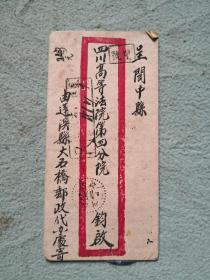 呈閬中縣
四川高等法院第四分院 鈞啟
由蓬溪縣大石橋郵政代办處寄